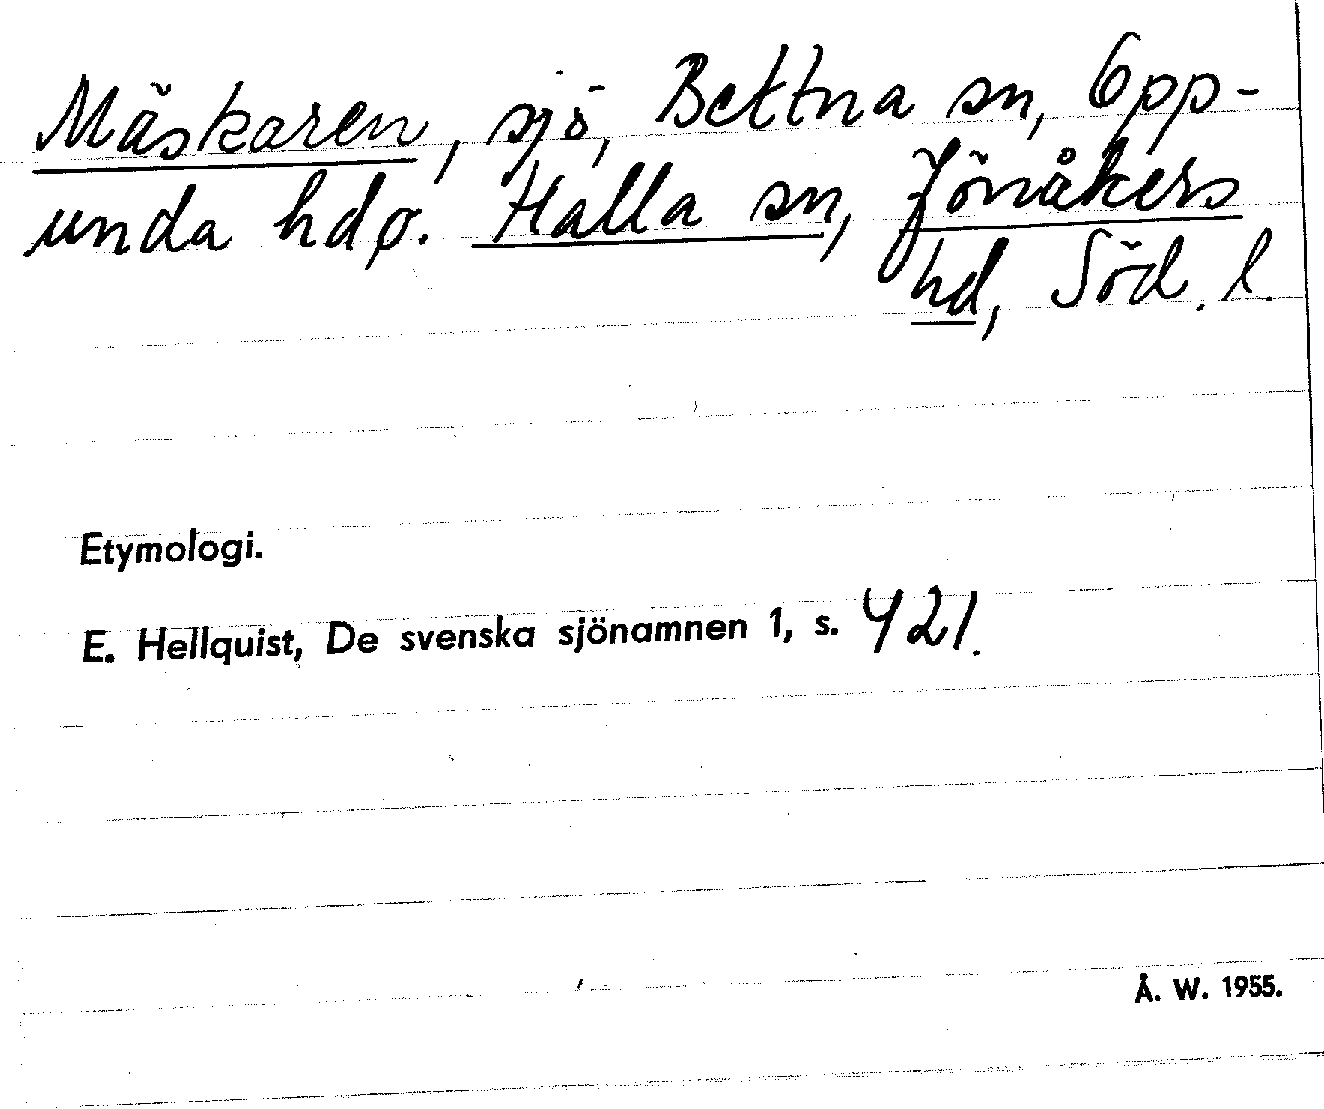 Mäskaren, sjö, Bettna sn, Opp-
unda hd o. Halla sn, Jönåkers
hd, Söd. l.
Etymologi.
E. Hellquist, De svenska sjönamnen 1, s. 421.
Å. W. 1955.